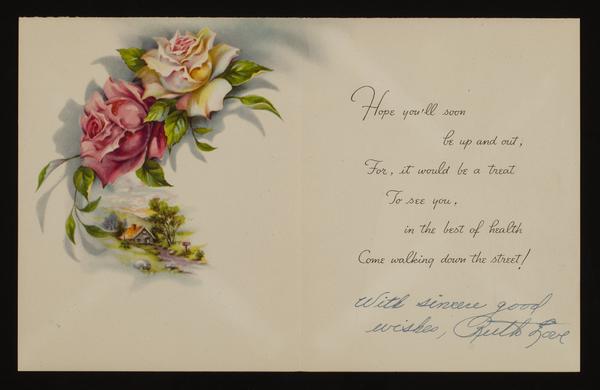 Hope you'll soon
be up and out,
For, it would be a treat
To see you,
in the best of health
Come walking down the street!
With sincere good
wishes, Ruth Love